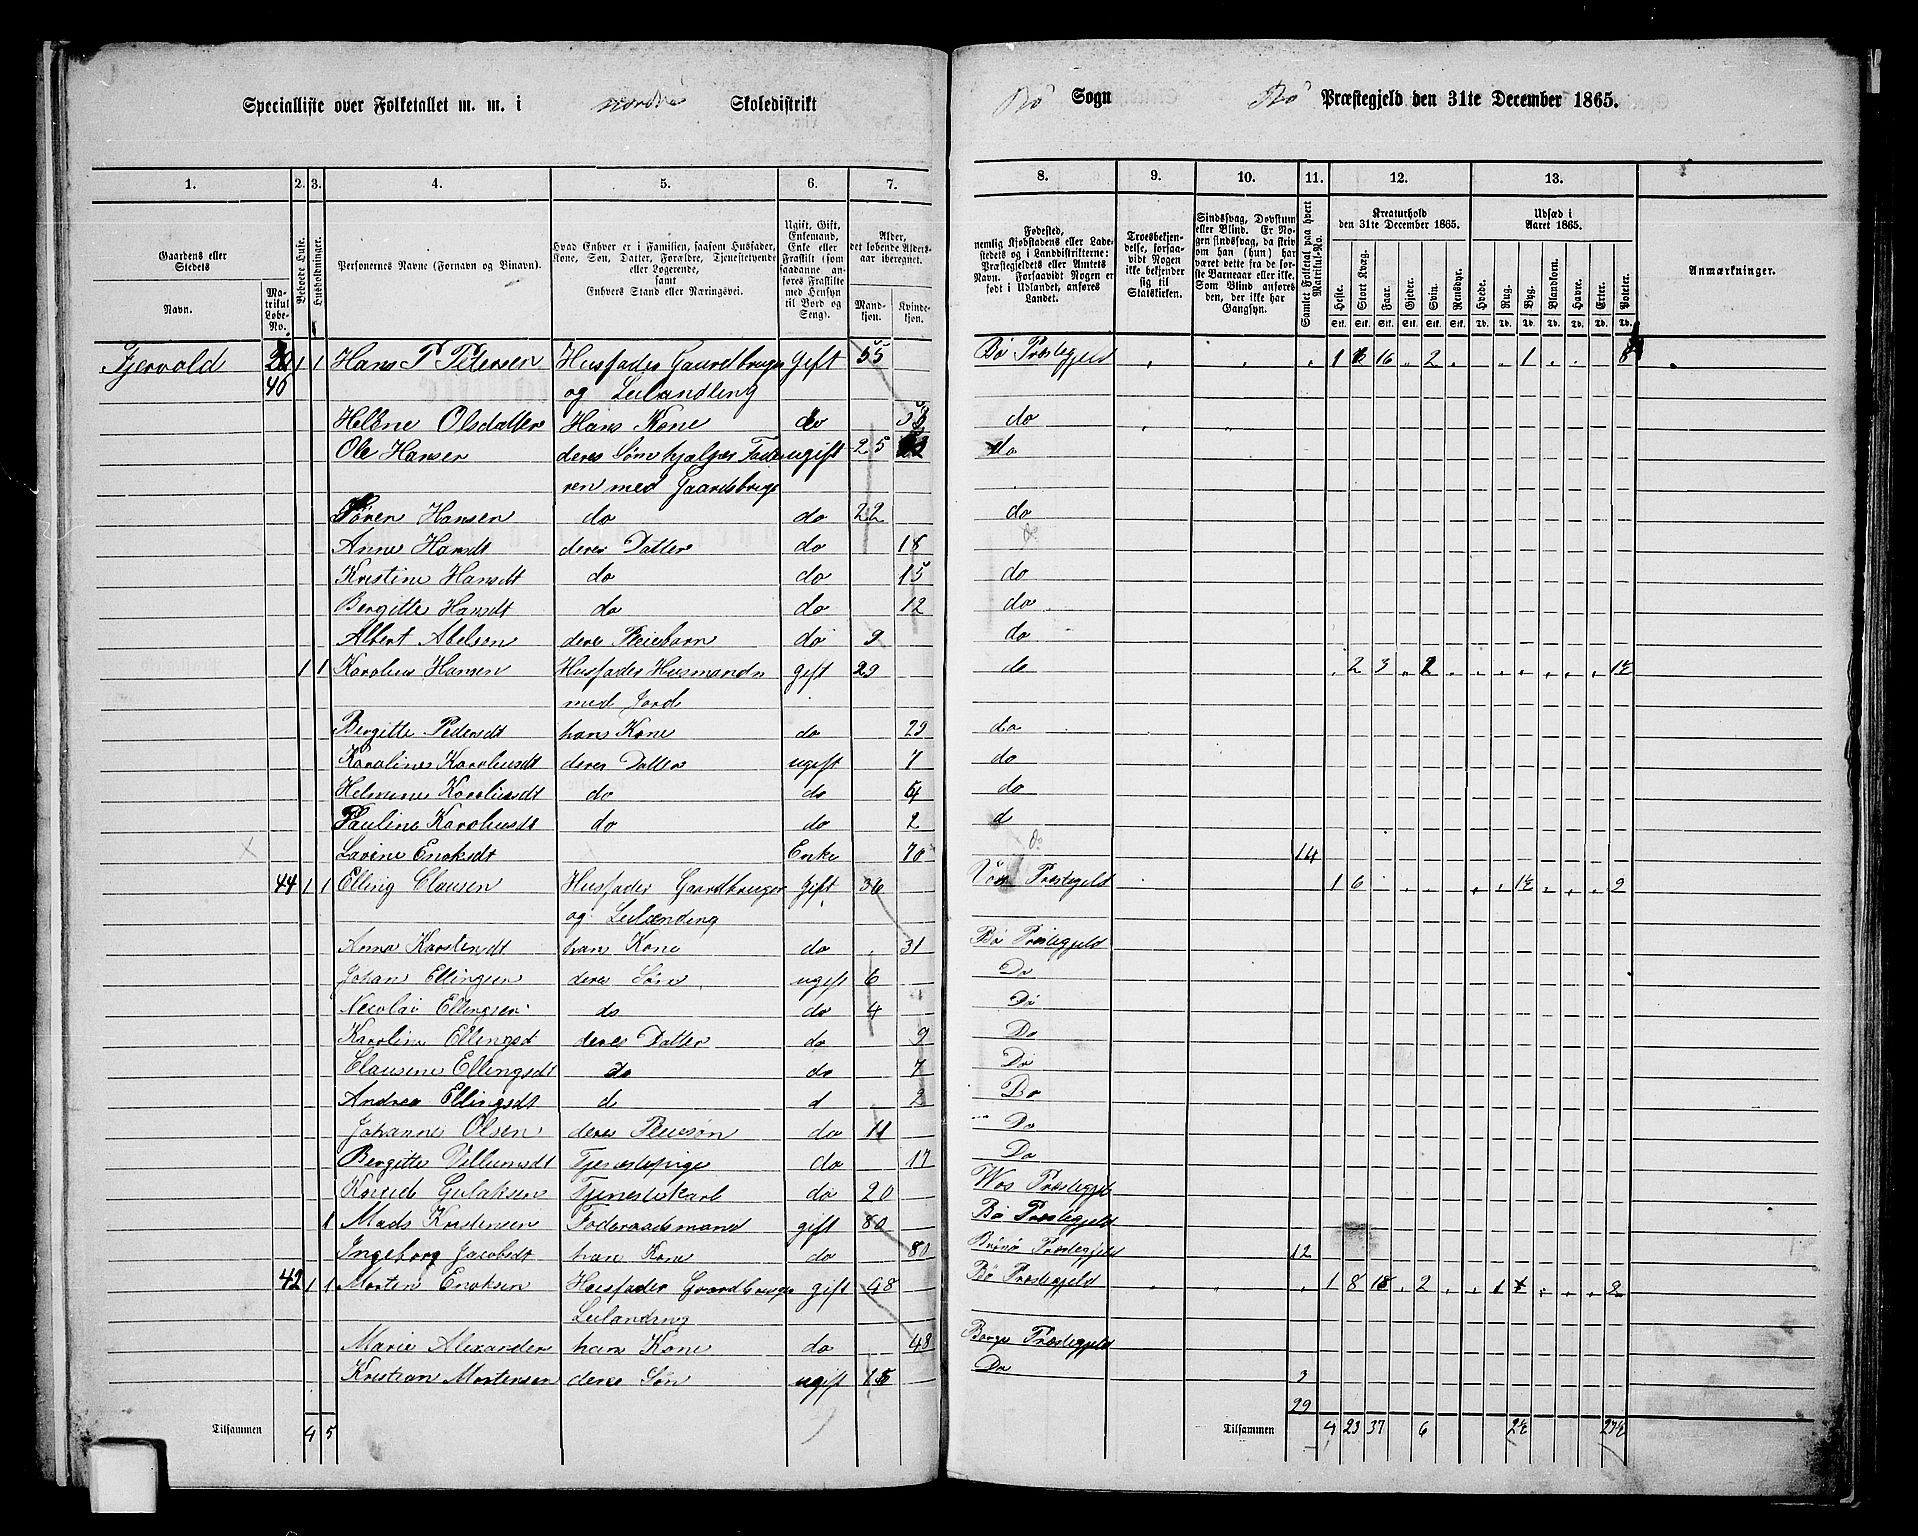 Specialliste over Folketallet m. m. i nordre Skoledistrikt Bø Sogn Bø Præstegjeld den 31te December 1865.
1. 2. 3. 4. 5. 6. 7. 8. 9. 10. 11. 12. 13.
Gaardens eller Stedets
Navn.
Matrikul Løbe-No.
Beboede Huse.
Husholdninger.
Personernes Navne (Fornavn og Binavn).
Hvad Enhver er i Familien, saasom Husfader, Kone, Søn, Datter, Forældre, Tjenestetyende eller Logerende, samt Enhvers Stand eller Næringsvei.
Ugift, Gift, Enkemand, Enke eller Fraskilt (som saadanne anføres Fraskilte med Hensyn til Bord og Seng).
Alder, det løbende Aldersaar iberegnet.
Mandkjøn. Kvindekjøn.
Fødested, nemlig Kjøbstadens eller Ladestedets og i Landdistrikterne: Præstegjeldets eller Amtets Navn. Forsaavidt Nogen er født i Udlandet, anføres Landet.
Troesbekjendelse, forsaavidt Nogen ikke bekjender sig til Statskirken.
Sindssvag, Døvstum eller Blind. Er Nogen sindssvag, da skriv om han (hun) har været dette fra de første Barneaar eller ikke. Som Blind anføres den, der ikke har Gangsyn.
Samlet Folketal paa hvert Matrikul-No.
Kreaturhold den 31te December 1865.
Heste. Stort Kvæg. Faar. Gjeder. Sviin. Rensdyr.
Stk. Stk. Stk. Stk. Stk. Stk.
Udsæd i Aaret 1865.
Hvede. Rug. Byg. Blandkorn. Havre. Erter. Poteter.
Td. Td. Td. Td. Td. Td. Td.
Anmærkninger.
Fjervold 1 1 Hans P Petersen Husfader Gaardbruger Gift 55 Bø Præstegjeld 1 16 2 1 8
40 og Leilænding
Helene Olsdatter Hans Kone do do
Ole Hansen deres Søn hjælper Fade ugift 25 do
ren med Gaardsbruge
Søren Hansen do do 22 do
Anne Hansdt deres Datter do 18 do
Kristine Hansdt do do 15 do
Bergitte Hansdt do do 12 do
Albert Abelsen deres Pleiebarn do 9 do
1 1 Karolius Hansen Husfader Husmand gift 29 do 2 3 1½
med Jord
Bergitte Pedersdt hans Kone do 29 do
Karoline Karoliusdt deres Datter ugift 7 do
Helmine Karoliusdt do do do
Pauline Karoliusdt do do 2 d
Lavine Enoksdt Enke 70 do 14
44 1 1 Elling Clausen Husfader Gaardbruger Gift 36 Præstegjeld 1 6 1½ 2
og Leilænding
Anna Karstendt hans Kone do 31 Bø Præstegjeld
Johan Ellingsen deres Søn ugift 6 Do
Nicolai Ellingsen do do 4 Do
Karoline Ellingsdt deres Datter do 9 Do
Clausine Ellingsdt do do 7 Do
Andrea Ellingsdt d d 2 Do
Johanne Olsen deres Pleiesøn do 11 Do
Bergitte Villumsdt Tjenestepige do 17 Do
Knud Gulaksen Tjenestekarl do 20 Wos Præstegjeld
1 Mads Kristensen Foderaadsmand gift 80 Bø Præstegjeld
Ingeborg Jacobsdt hans Kone do 80 Brønø Præstegjeld 12
42 1 1 Morten Enoksen Husfader Gaardbruger gift 48 Bø Præstegjeld 1 8 18 2 2
Leilænding
Marie Alexander hans Kone do 48 Borge Præstegjeld
Kristian Mortensen deres Søn ugift 15 Do 3
29
Tilsammen 4 5 Tilsammen 4 23 37 6 2½